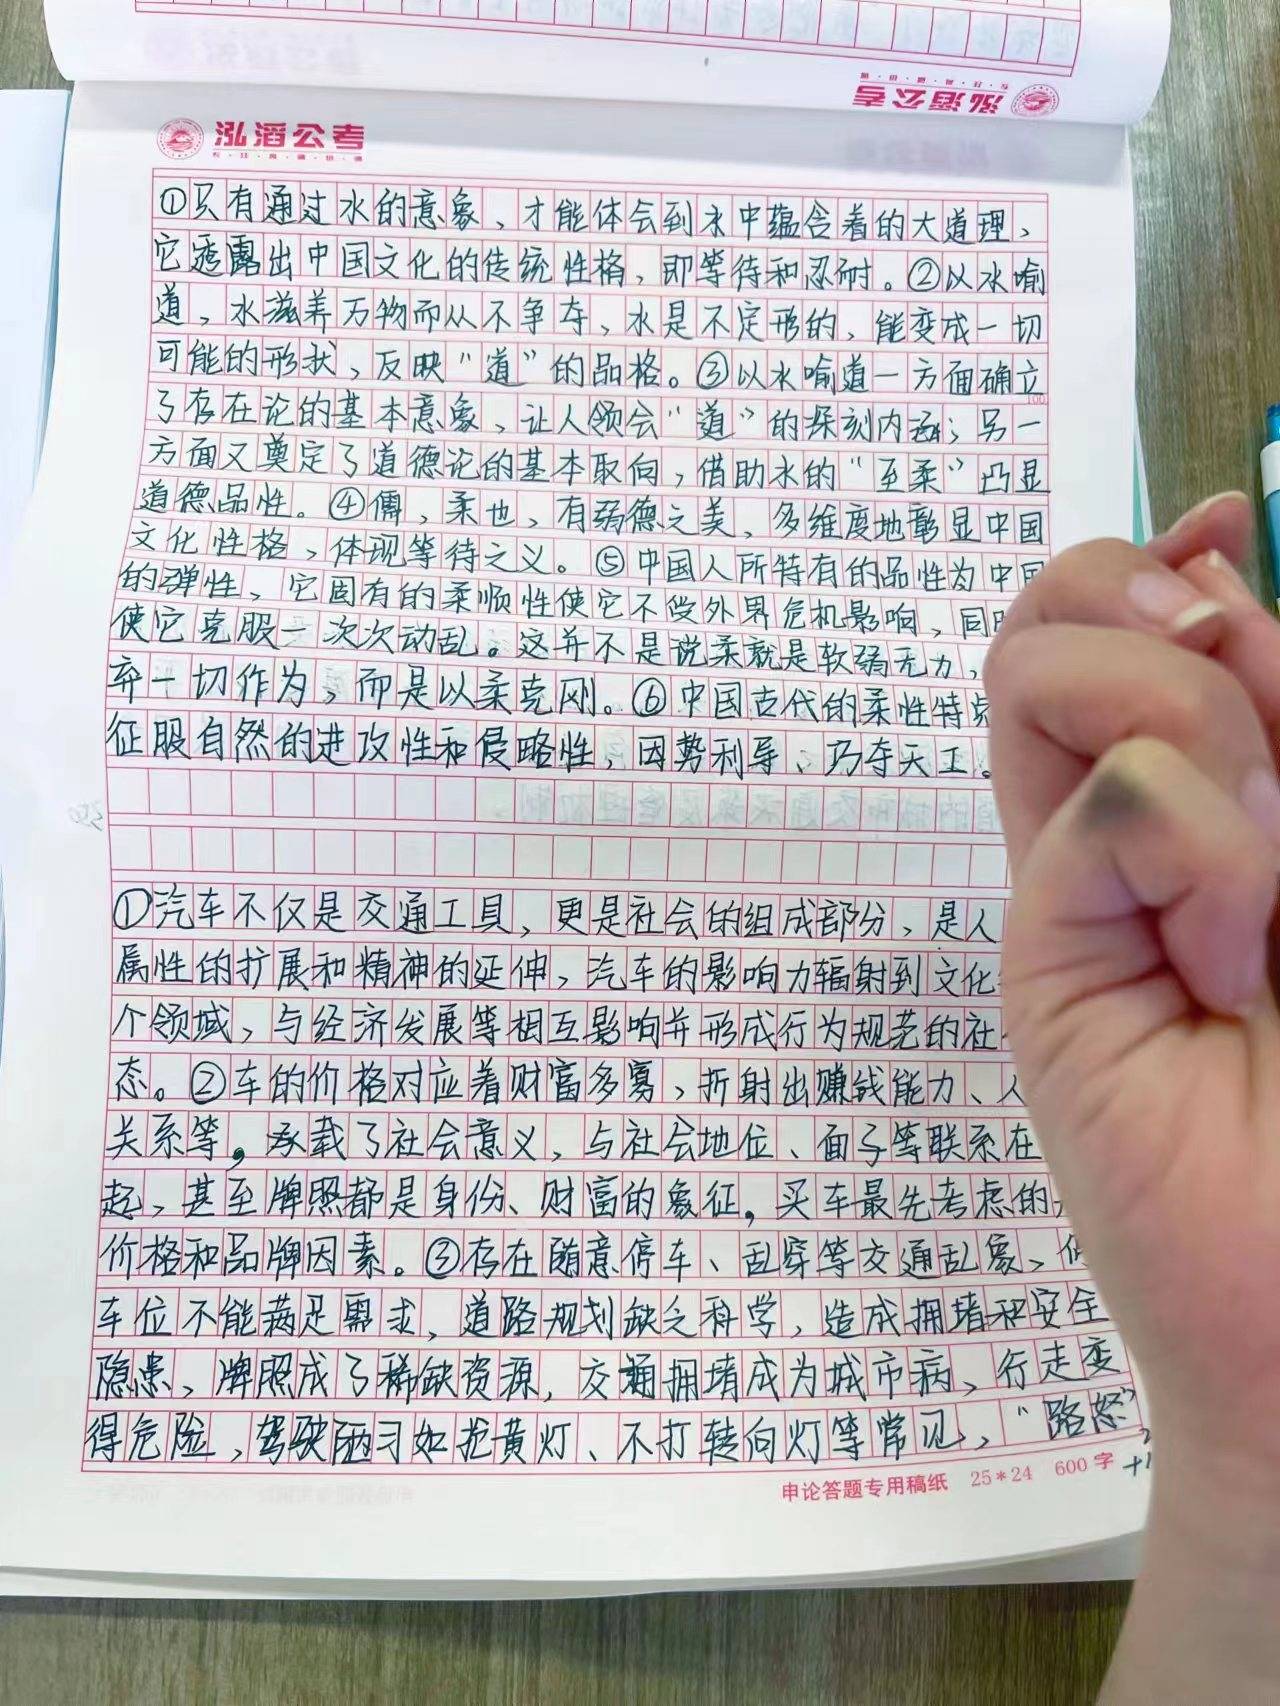 泓滔公考
泓滔公考
①只有通过水的意象、才能体会到水中蕴含着的大道理、
它透露出中国文化的传统性格，即等待和忍耐。②以水喻
道，水滋养万物而从不争夺，水是不定形的，能变成一切
可能的形状，反映“道”的品格。③以水喻道一方面确立
了存在论的基本意象，让人领会“道”的深刻内涵；另一
100
方面又奠定了道德论的基本取向，借助水的“至柔”凸显
道德品性。④儒，柔也，有弱德之美，多维度地彰显中国
文化性格、体现等待之义。⑤中国人所特有的品性为中国
的弹性，它固有的柔顺性使它不受外界危机影响，同
使它克服一次次动乱。这并不是说柔就是软弱无力，
弃一切作为，而是以柔克刚。⑥中国古代的柔性特点
征服自然的进攻性和侵略性，因势利导、巧夺天工。
①汽车不仅是交通工具，更是社会的组成部分，是人
属性的扩展和精神的延伸，汽车的影响力辐射到文化
个领域，与经济发展等相互影响并形成行为规范的社
态。②车的价格对应着财富多寡，折射出赚钱能力、人
关系等，承载了社会意义，与社会地位、面子等联系在
起，甚至牌照都是身份、财富的象征，买车最先考虑的
价格和品牌因素。③存在随意停车、乱穿等交通乱象，
车位不能满足需求，道路规划缺乏科学，造成拥堵和安全
隐患，牌照成了稀缺资源，交通拥堵成为城市病，行走变
得危险，驾驶陋习如抢黄灯、不打转向灯等常见，“路怒”
申论答题专用稿纸 25*24 600字